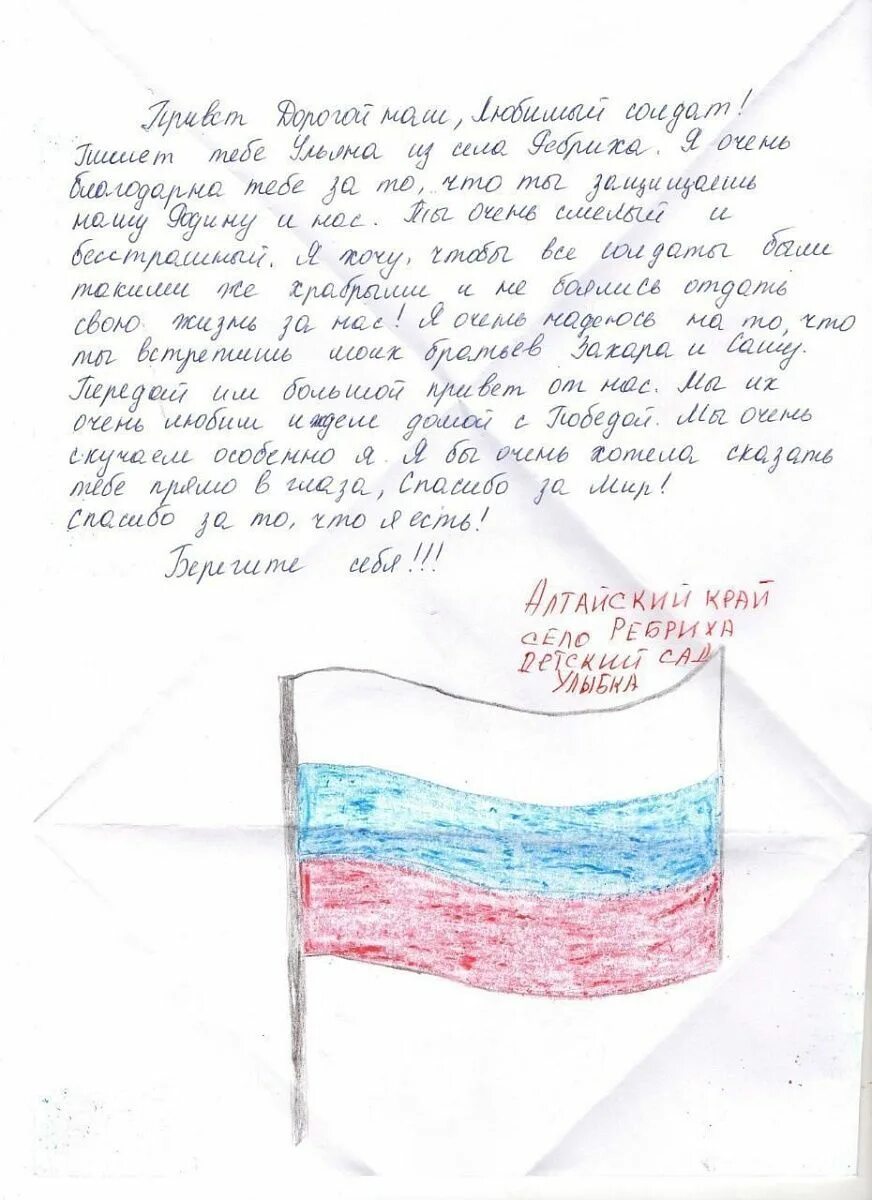 Привет Дорогой наш, Любимый солдат!
Пишет тебе Ульяна из села Ребриха. Я очень
благодарна тебе за то, что ты защищаешь
нашу Родину и нас. Ты очень смелый и
бесстрашный. Я хочу, чтобы все солдаты были
такими же храбрыми и не боялись отдать
свою жизнь за нас! Я очень надеюсь на то, что
ты встретишь моих братьев Захара и Сашу.
Передай им большой привет от нас. Мы их
очень любим и ждем домой с Победой. Мы очень
скучаем особенно я. Я бы очень хотела сказать
тебе прямо в глаза, Спасибо за Мир!
Спасибо за то, что я есть!
Берегите себя!!!
АЛТАЙСКИЙ КРАЙ
СЕЛО РЕБРИХА
ДЕТСКИЙ САД
УЛЫБКА